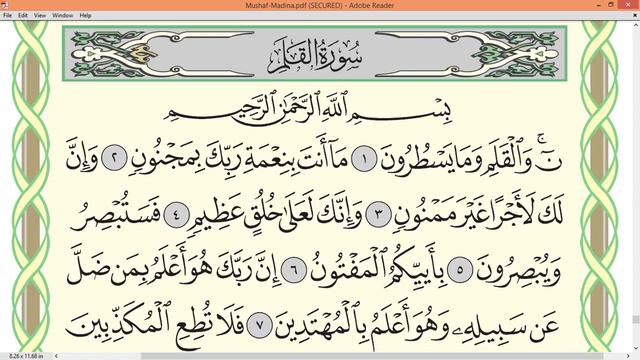 Mushaf-Madina.pdf (SECURED) - Adobe Reader
File Edit View Window Help
سُورَةُ القَلَمِ
بِسْمِ ٱللَّهِ ٱلرَّحْمَٰنِ ٱلرَّحِيمِ
نٓ ۚ وَٱلْقَلَمِ وَمَا يَسْطُرُونَ ١ مَآ أَنتَ بِنِعْمَةِ رَبِّكَ بِمَجْنُونٍ ٢ وَإِنَّ
لَكَ لَأَجْرًا غَيْرَ مَمْنُونٍ ٣ وَإِنَّكَ لَعَلَىٰ خُلُقٍ عَظِيمٍ ٤ فَسَتُبْصِرُ
وَيُبْصِرُونَ ٥ بِأَييِّكُمُ ٱلْمَفْتُونُ ٦ إِنَّ رَبَّكَ هُوَ أَعْلَمُ بِمَن ضَلَّ
عَن سَبِيلِهِۦ وَهُوَ أَعْلَمُ بِٱلْمُهْتَدِينَ ٧ فَلَا تُطِعِ ٱلْمُكَذِّبِينَ
8.26 x 11.68 in